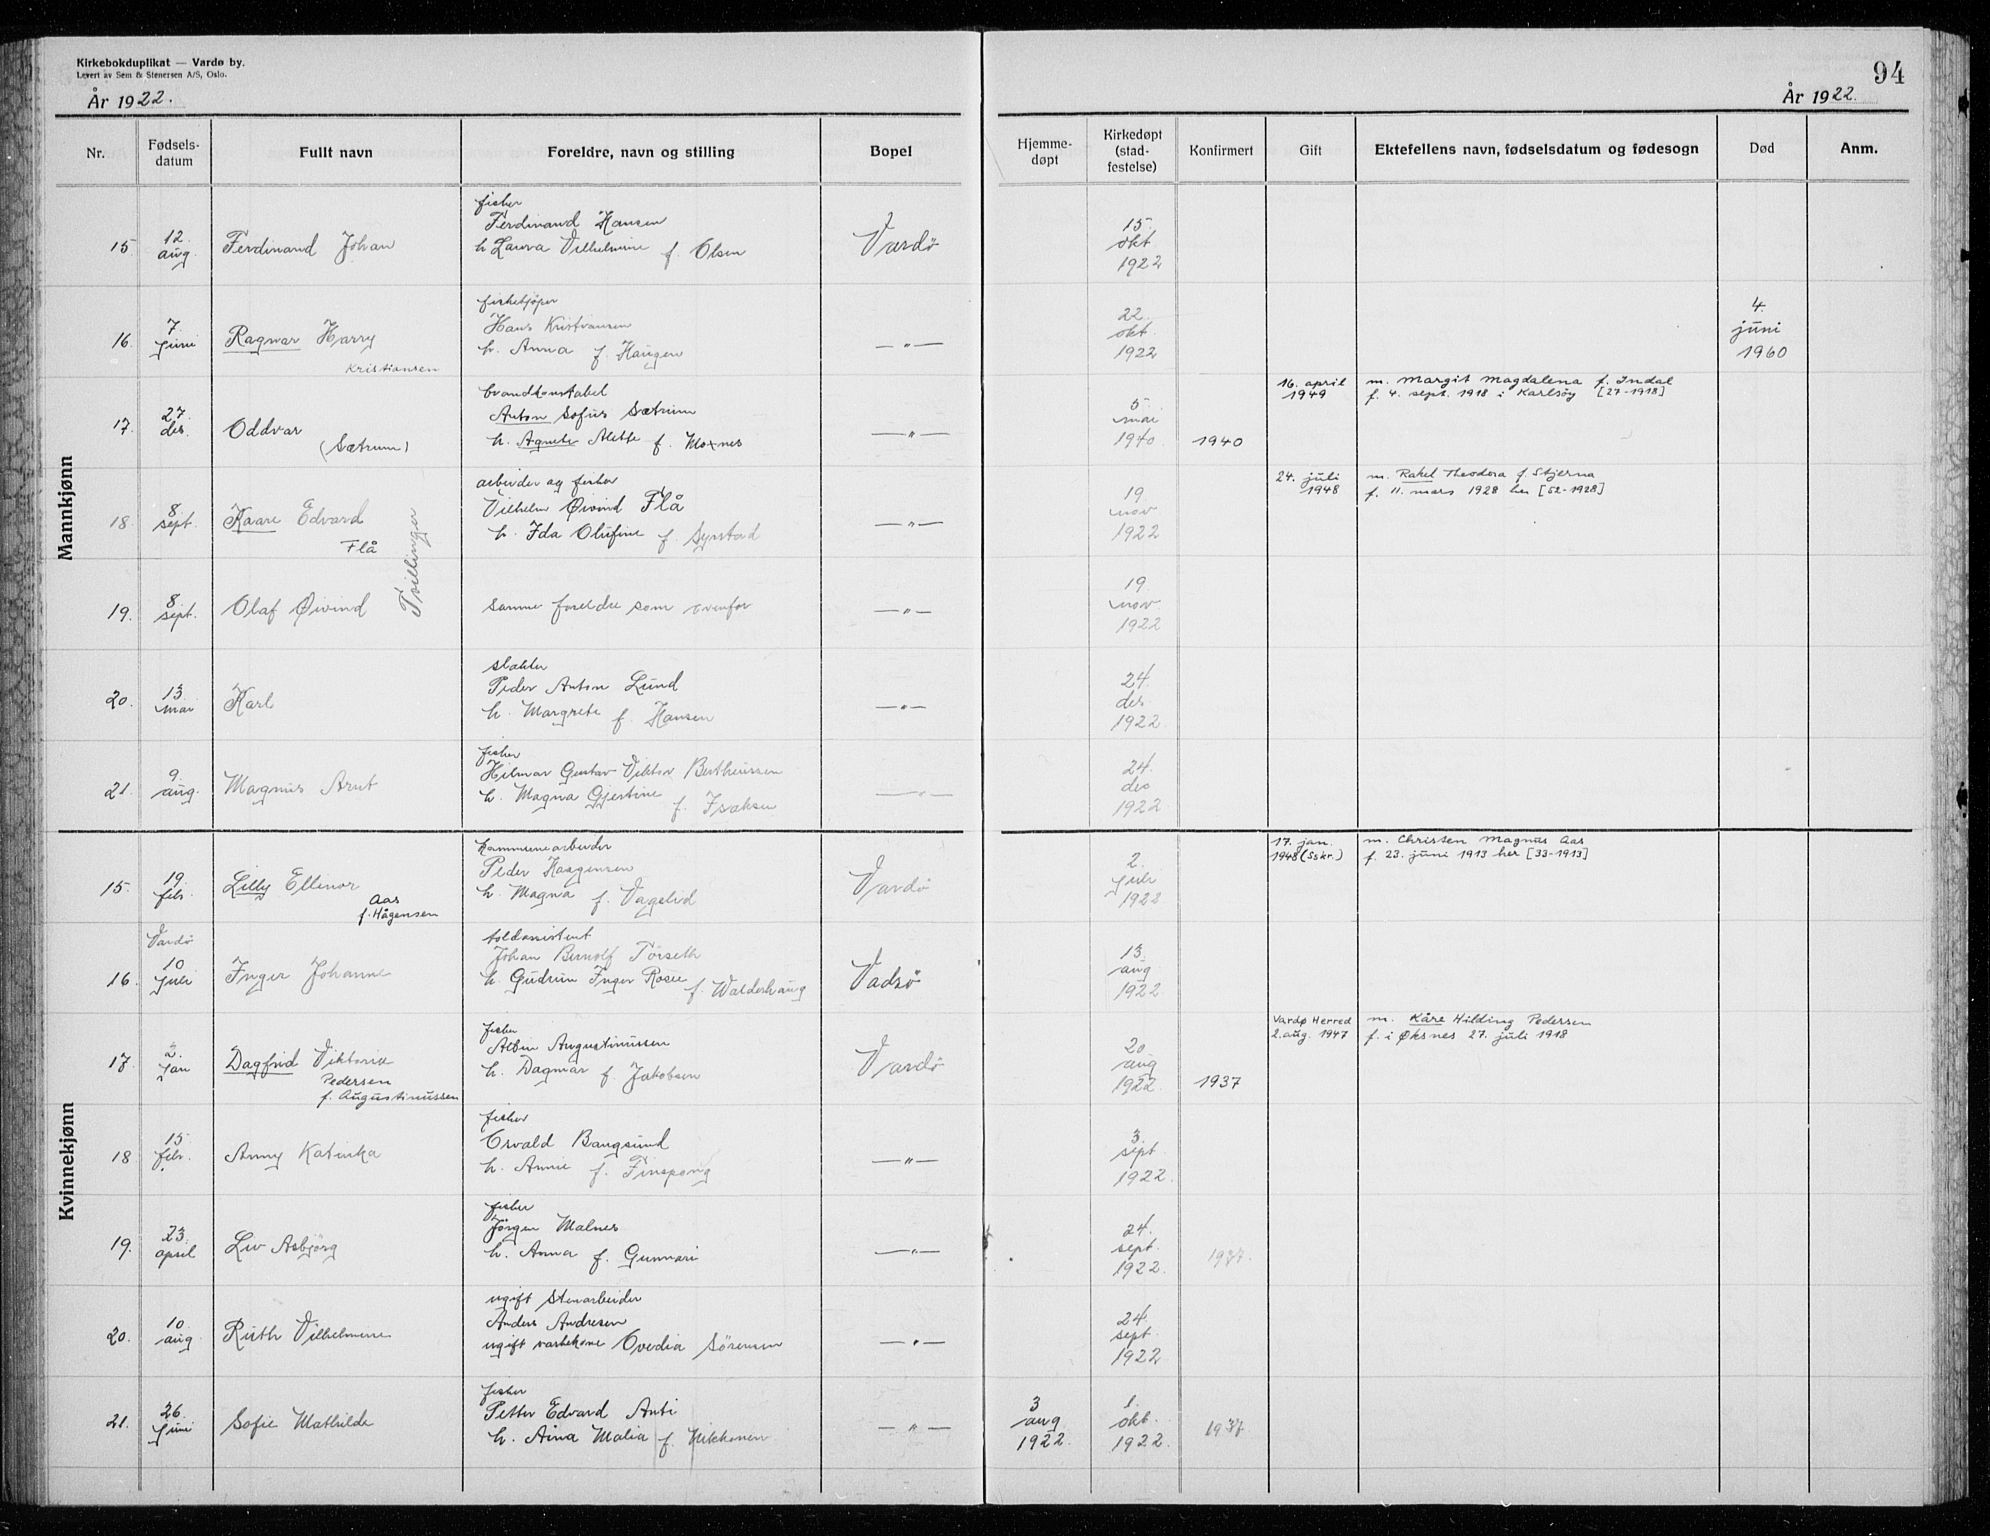 Kirkebokduplikat — Vardø by.
Levert av Sem & Stenersen A/S, Oslo.
År 1922.
94
År 1922.
Nr.
Fødsels-
datum
Fullt navn
Foreldre, navn og stilling
Bopel
Hjemme-
døpt
Kirkedøpt
(stad-
festelse)
Konfirmert
Gift
Ektefellens navn, fødselsdatum og fødesogn
Død
Anm.
Mannkjønn
15
12.
aug.
Ferdinand Johan
fisker
Ferdinand Hansen
h. Laura Vilhelmine f. Olsen
Vardø
15.
okt
1922
16.
7.
juni
Ragnar Harry
Kristiansen
fiskekjøper
Hans Kristiansen
h. Anna f. Haugen
—"—
22.
okt.
1922
4.
juni
1960
17.
27.
des.
Oddvar
(Sætrum)
brandkonstabel
Anton Sofus Sætrum
h. Agnete Alette f. Moxnes
—"—
5.
mai
1940.
1940
16. april
1949
m. Margit Magdalena f. Indal
f. 4. sept. 1918 i Karlsøy [27-1918]
18.
8.
sept.
Kaare Edvard
Flå
Tvillinger
arbeider og fisker
Vilhelm Øivind Flå
h. Ida Olufine f. Syrstad
—"—
19.
nov
1922
24. juli
1948
m. Rakel Theodora f. Stjerna
f. 11. mars 1928 her [52-1928]
19.
8
sept.
Olaf Øivind
samme foreldre som ovenfor
—"—
19.
nov.
1922
20.
13.
mai
Karl
slakter
Peder Anton Lund
h. Margrete f. Hansen
—"—
24.
des.
1922
21.
9.
aug.
Magnus Arnt
fisker
Hilmar Gustav Viktor Bertheussen
h. Magna Gjertine f. Isaksen
—"—
24.
des
1922
Kvinnekjønn
15.
19.
febr.
Lilly Ellinor
Aas
f. Hågensen
kommunearbeider
Peder Haagensen
h. Magna f. Vagelid
Vardø
2.
juli
1922
17. jan.
1948 (Sskr.)
m. Christen Magnus Aas
f. 23. juni 1913 her [33-1913]
16.
Vardø
10
juli
Inger Johanne
toldassistent
Johan Bernolf Torseth
h. Gudrun Inger Rosee f. Walderhaug
Vadsø
13.
aug
1922
17
2.
jan
Dagfrid Viktoria
Pedersen
f. Augustinussen
fisker
Albin Augustinussen
h. Dagmar f. Jakobsen
Vardø
20.
aug
1922.
1937
Vardø Herred
2. aug. 1947
m. Kåre Hilding Pedersen
f. i Øksnes 27. juli 1918
18
15.
febr.
Anny Katinka
fisker
Osvald Bangsund
h. Annie f. Finspong
—"—
3.
sept.
1922.
19.
23.
april
Liv Asbjørg
fisker
Jørgen Malnes
h. Anna f. Gunnari
—"—
24.
sept.
1922.
1937.
20.
10.
aug
Ruth Vilhelmine
ugift stenarbeider
Anders Andresen
ugift vaskekone Ovedia Sørensen
—"—
24.
sept.
1922
21.
26.
juni
Sofie Mathilde
fisker
Petter Edvard Anti
h. Aina Malia f. Mikkonen
—"—
3
aug
1922.
1.
okt.
1922.
1937.